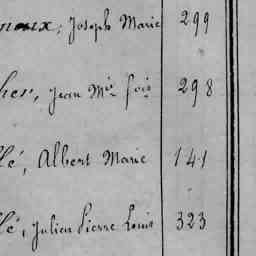 noux, Joseph Marie 299
her, Jean Mie fois 298
lé, Albert Marie 141
lé, Julien Pierre Louis 323